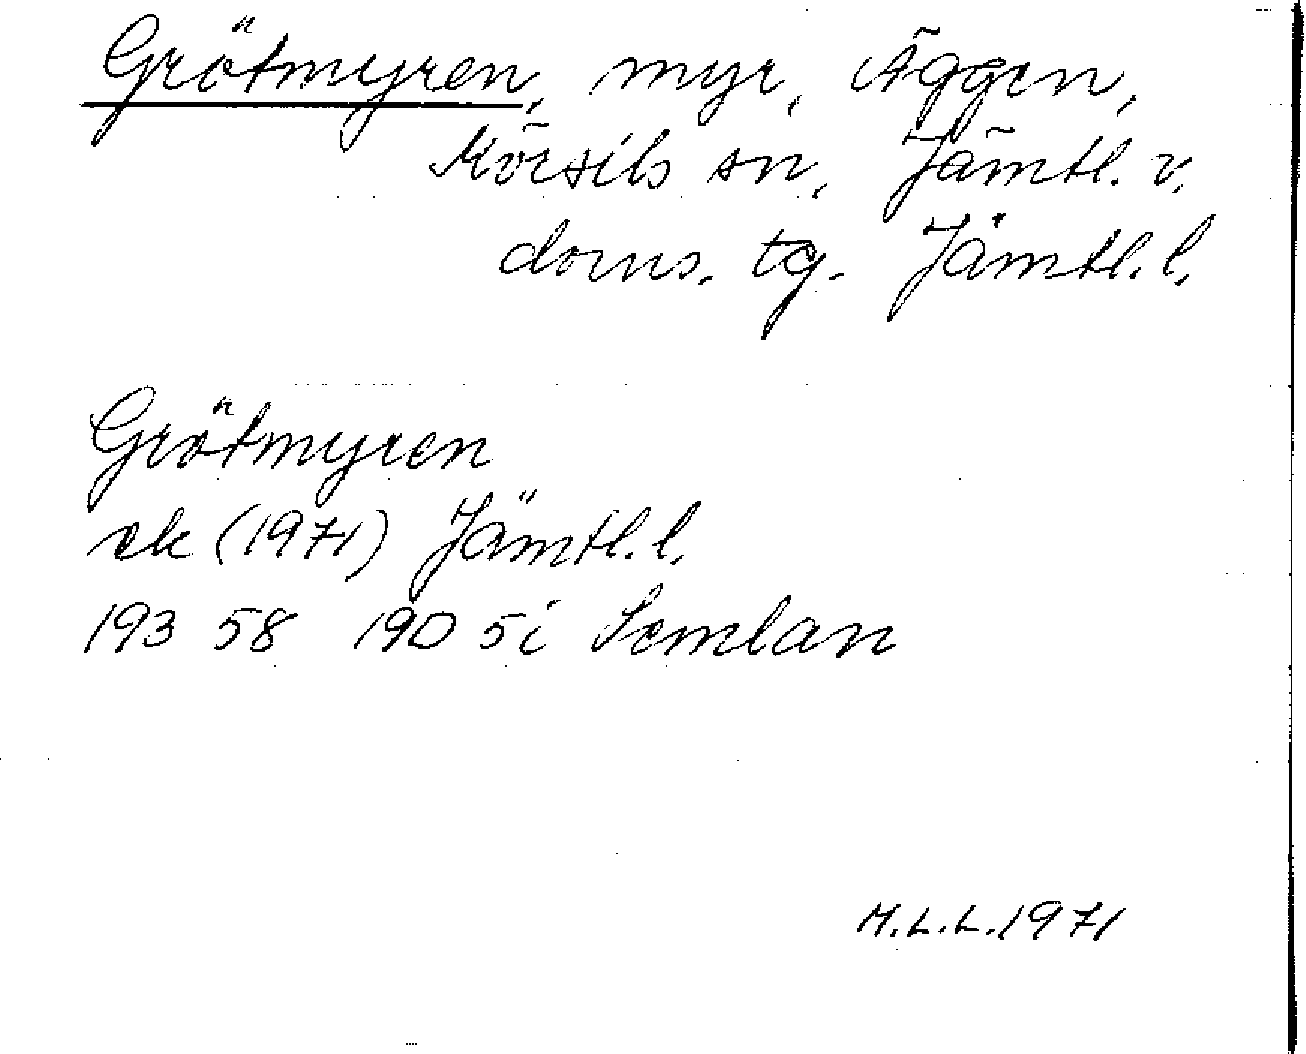 Grötmyren, myr, Äggen,
Mörsils sn, Jämtl. v.
doms. tg. Jämtl. l.
Grötmyren
ek (1971) Jämtl. l.
193 58 19D 5i Semlan
M.L.L. 1971